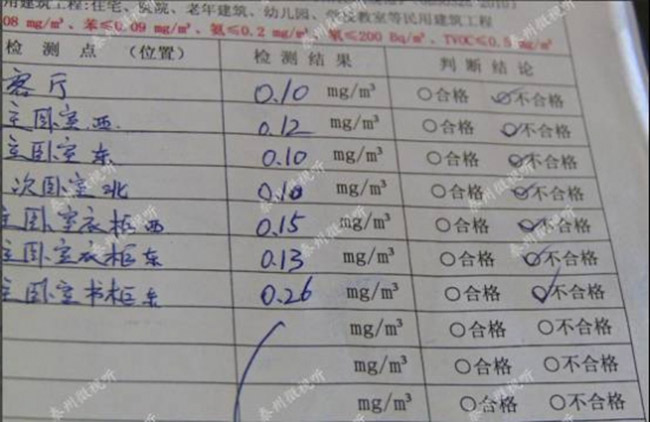 用建筑工程:住宅、医院、老年建筑、幼儿园、学校教室等民用建筑工程
08 mg/m³、苯≤0.09 mg/m³、氨≤0.2 mg/m³、氡≤200 Bq/m³、TVOC≤0.5 mg/m³
检测点(位置) 检测结果 判断结论
客厅 0.10 mg/m³ ○合格 ○不合格
主卧室西 0.12 mg/m³ ○合格 ○不合格
主卧室东 0.10 mg/m³ ○合格 ○不合格
次卧室北 0.10 mg/m³ ○合格 ○不合格
主卧室衣柜西 0.15 mg/m³ ○合格 ○不合格
主卧室衣柜东 0.13 mg/m³ ○合格 ○不合格
主卧室书柜东 0.26 mg/m³ ○合格 ○不合格
mg/m³ ○合格 ○不合格
mg/m³ ○合格 ○不合格
mg/m³ ○合格 ○不合格
泰州微视听